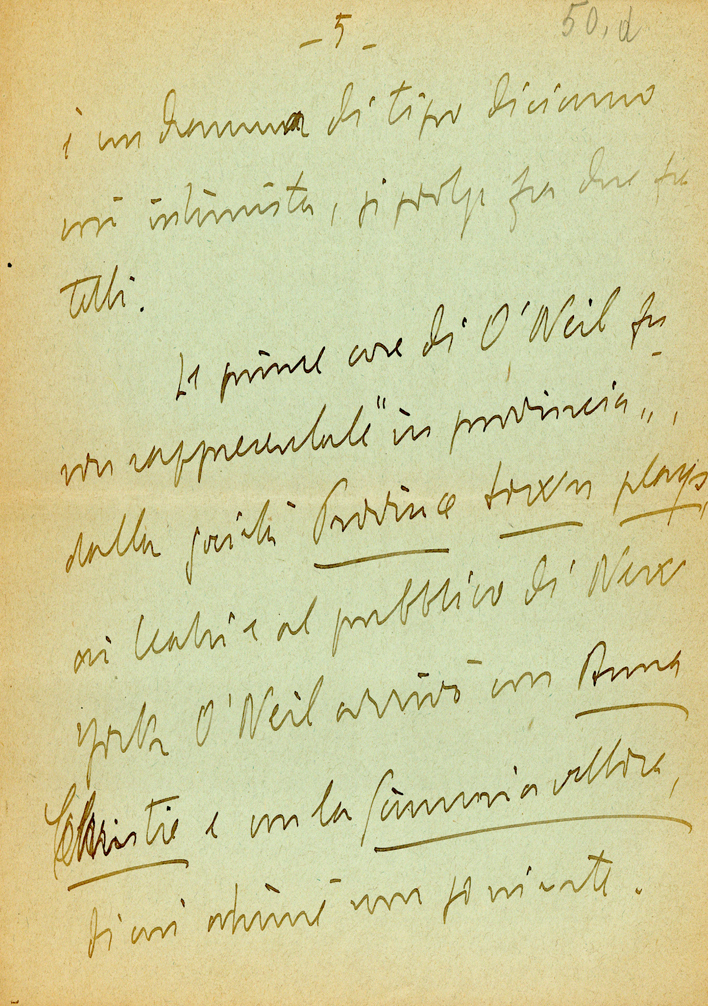 - 5 -
50.d
è un dramma di tipo diciamo
così intimista, si svolge fra due fra
telli.
Le prime cose di O'Neil fu
ron rappresentate "in provincia",,
dalla società Province town plays,
ai teatri e al pubblico di New
York O'Neil arrivò con Anna
Christie e con la
di cui ahimé non so niente.